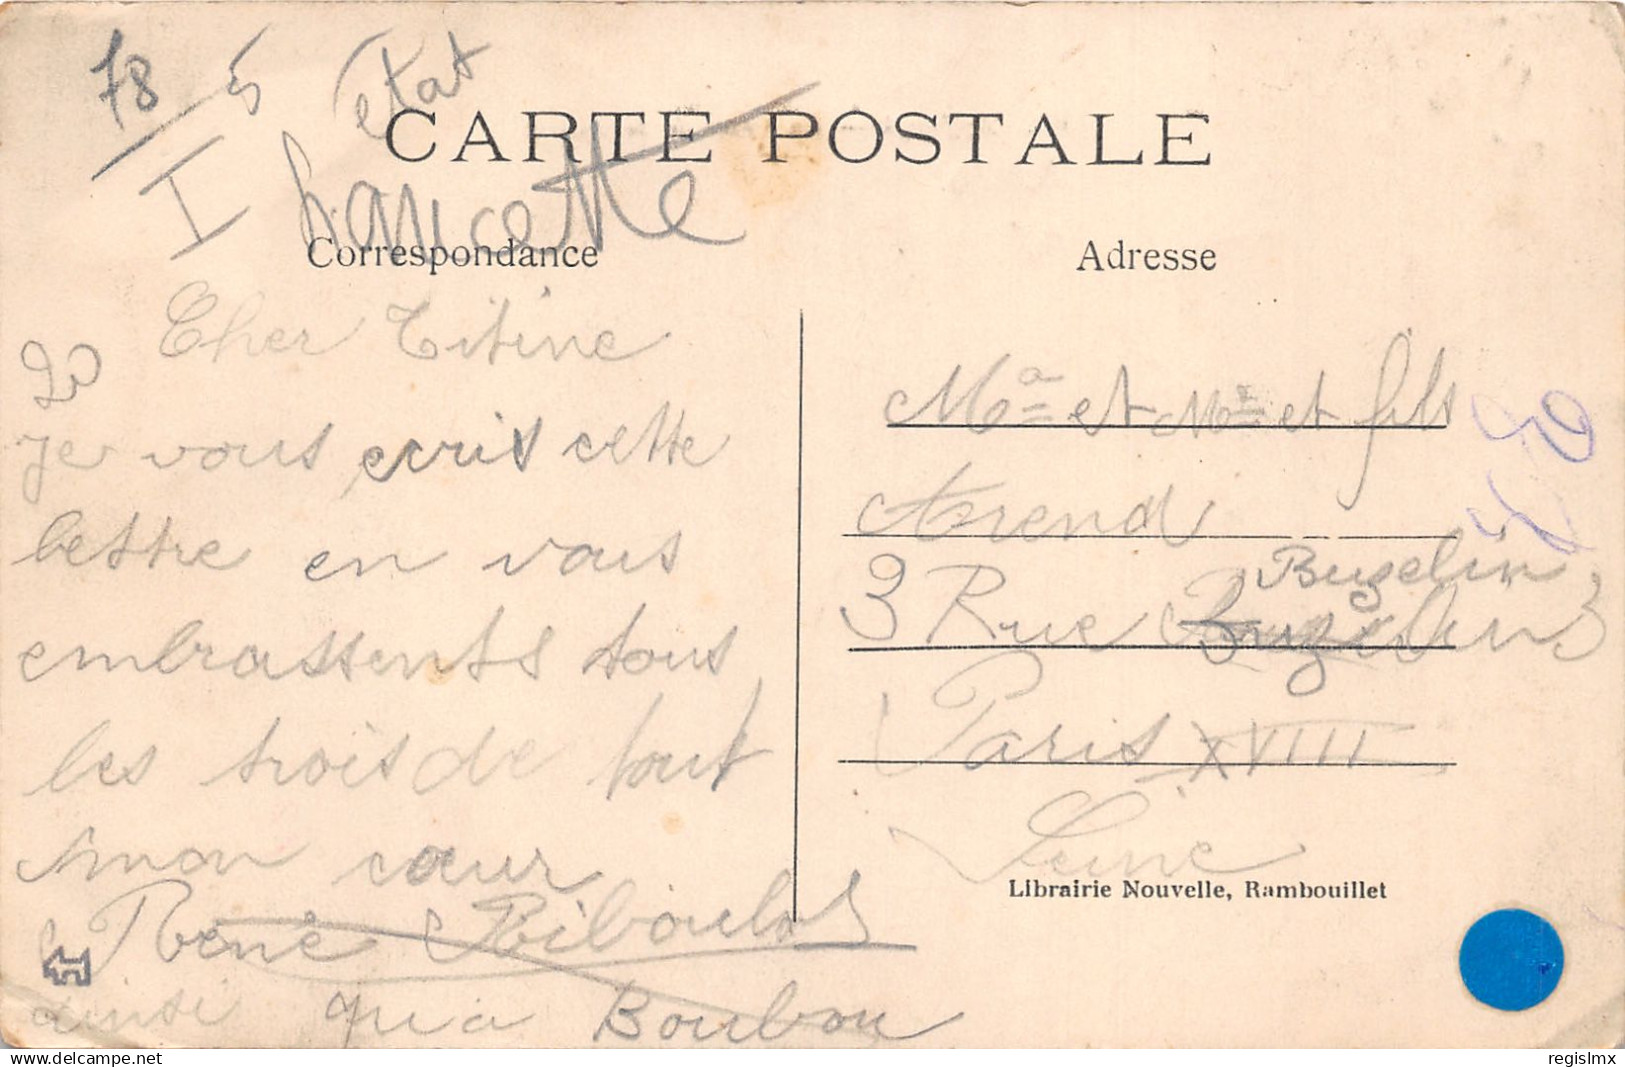 78
5
I
état
hancette
CARTE POSTALE
Correspondance
Adresse
Cher Titine
Je vous ecris cette
lettre en vous
embrassents tous
les trois de tout
mon cœur
René Riboulot
ainsi qu'a Boubou
Ma et Mr et fils
Arend
3 Rue Buzelin 3
Paris XVIII
Seine
Librairie Nouvelle, Rambouillet
regislmx